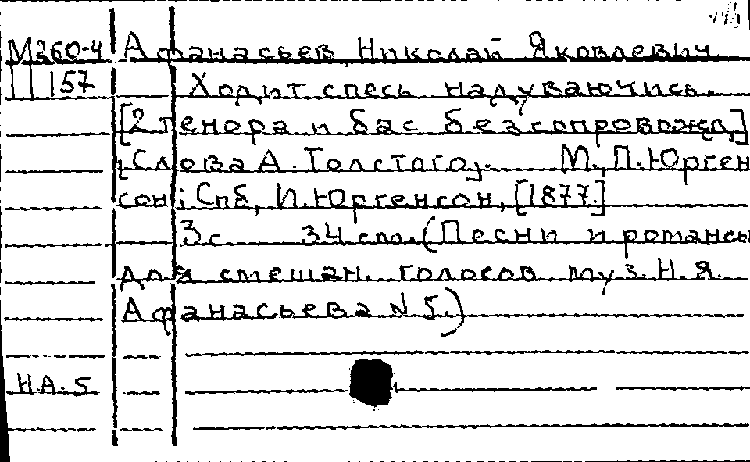 М360-4 Афанасьев, Николай Яковлевич
III 157 Ходит спесь надуваючись.
[2 тенора и бас без сопровожд.]
(Слова А. Толстого). М., П. Юрген
сон; Спб, И. Юргенсон, [1877.]
3 с 34 см. (Песни и романсы
для смешан. голосов муз. Н. Я.
Афанасьева N 5.)
НА.5